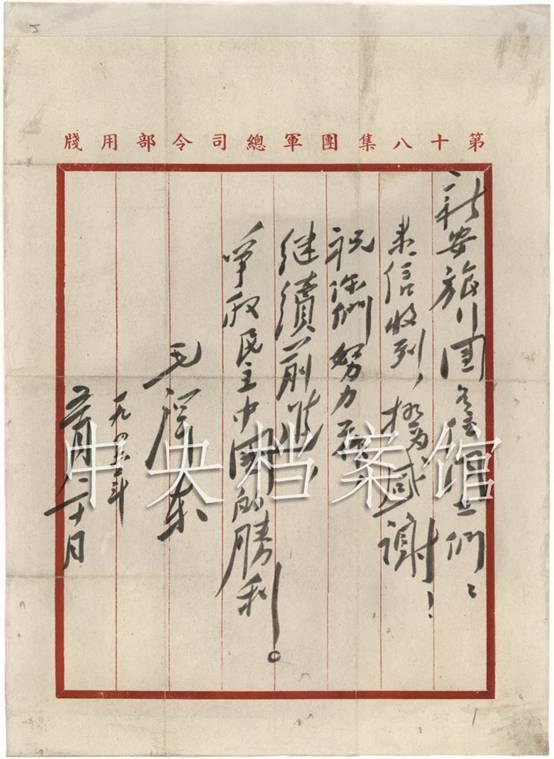 第十八集團軍總司令部用牋
新安旅行團們：
来信收到，極為感謝！
祝你們努力
继續前進，
爭取民主中國的勝利。
毛澤东
一九四六年
五月二十日
中央档案馆